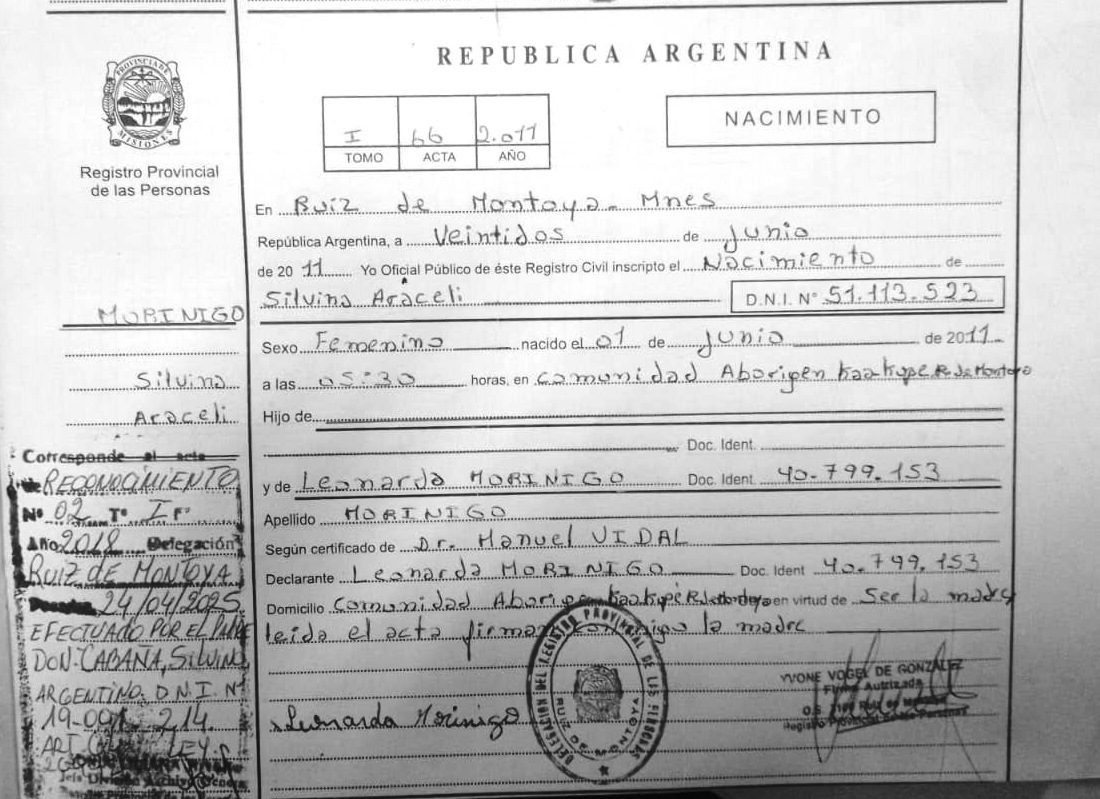 REPUBLICA ARGENTINA
PROVINCIA DE MISIONES
Registro Provincial
de las Personas
I 66 2.011
TOMO ACTA AÑO
NACIMIENTO
En Ruiz de Montoya - Mnes
República Argentina, a Veintidos de Junio
de 2011 Yo Oficial Público de éste Registro Civil inscripto el Nacimiento de
Silvina Araceli D.N.I. Nº 51.113.523
Sexo Femenino nacido el 01 de Junio de 2011
a las 05:30 horas, en Comunidad Aborigen Kaakupe R. de Montoya
Hijo de
Doc. Ident.
y de Leonarda MORINIGO Doc. Ident. 40.799.153
Apellido MORINIGO
Según certificado de Dr. Manuel VIDAL
Declarante Leonarda MORINIGO Doc. Ident 40.799.153
Domicilio Comunidad Aborigen Kaakupe R. de Montoya en virtud de Ser la madre
leida el acta firman conmigo la madre
Leonarda Morinigo
DELEGACION DEL REGISTRO PROVINCIAL DE LAS PERSONAS
RUIZ DE MONTOYA
YVONE VOGEL DE GONZALEZ
Firma Autorizada
Registro Provincial de las Personas
MORINIGO
Silvina
Araceli
Corresponde al acta
de RECONOCIMIENTO
Nº 02 Tº I Fº
Año 2018 Delegación
RUIZ DE MONTOYA
24/04/2025
EFECTUADO POR EL PADRE
DON: CABAÑA, SILVINO
ARGENTINO: D.N.I. Nº
19-091.214